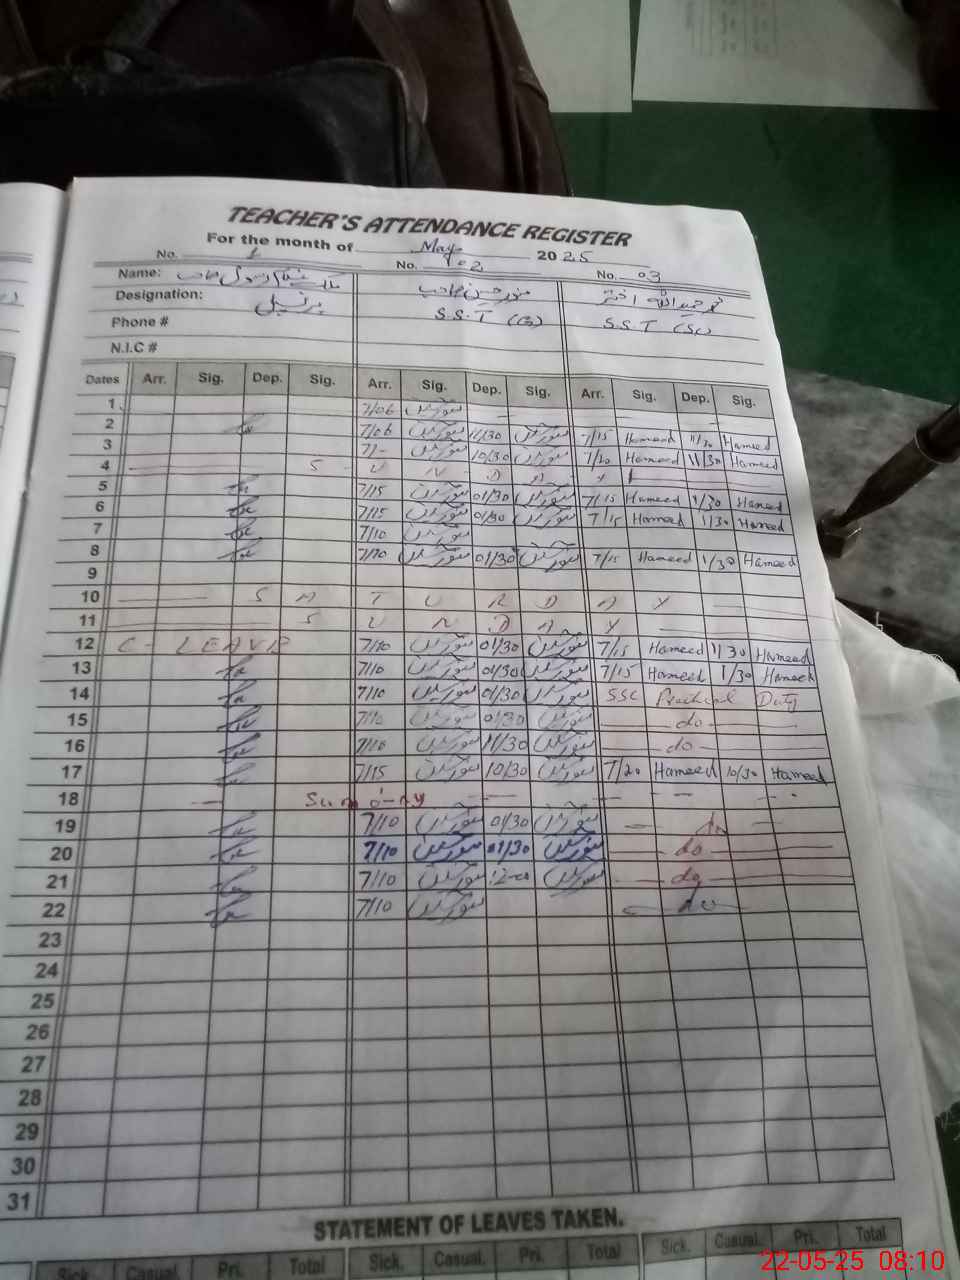 TEACHER'S ATTENDANCE REGISTER
For the month of May 2025
No. 1 No. 02 No. 03
Name: ملک غلام رسول صاحب منور حسن صاحب محمد حمیداللہ اختر
Designation: پرنسپل S.S.T (G) S.S.T (Sc)
Phone #
N.I.C #
Dates Arr. Sig. Dep. Sig. Arr. Sig. Dep. Sig. Arr. Sig. Dep. Sig.
1 7/06
2 7/06 11/30 7/15 Hameed 11/30 Hameed
3 7/- 10/30 7/20 Hameed 11/30 Hameed
4 S U N D A Y
5 7/15 01/30 7/15 Hameed 1/30 Hameed
6 7/15 01/30 7/15 Hameed 1/30 Hameed
7 7/10
8 7/10 01/30 7/15 Hameed 1/30 Hameed
9
10 S A T U R D A Y
11 S U N D A Y
12 C - LEAVE 7/10 01/30 7/15 Hameed 1/30 Hameed
13 7/10 01/30 7/15 Hameed 1/30 Hameed
14 7/10 01/30 SSC Practical Duty
15 7/10 01/30 do
16 7/10 11/30 do
17 7/15 10/30 7/20 Hameed 10/30 Hameed
18
19 7/10 01/30 do
20 7/10 01/30 do
21 7/10 12-00 do
22 7/10 do
23
24
25
26
27
28
29
30
31
STATEMENT OF LEAVES TAKEN.
Sick Casual. Pri. Total Sick. Casual. Pri. Total Sick. Casual. Pri. Total
22-05-25 08:10